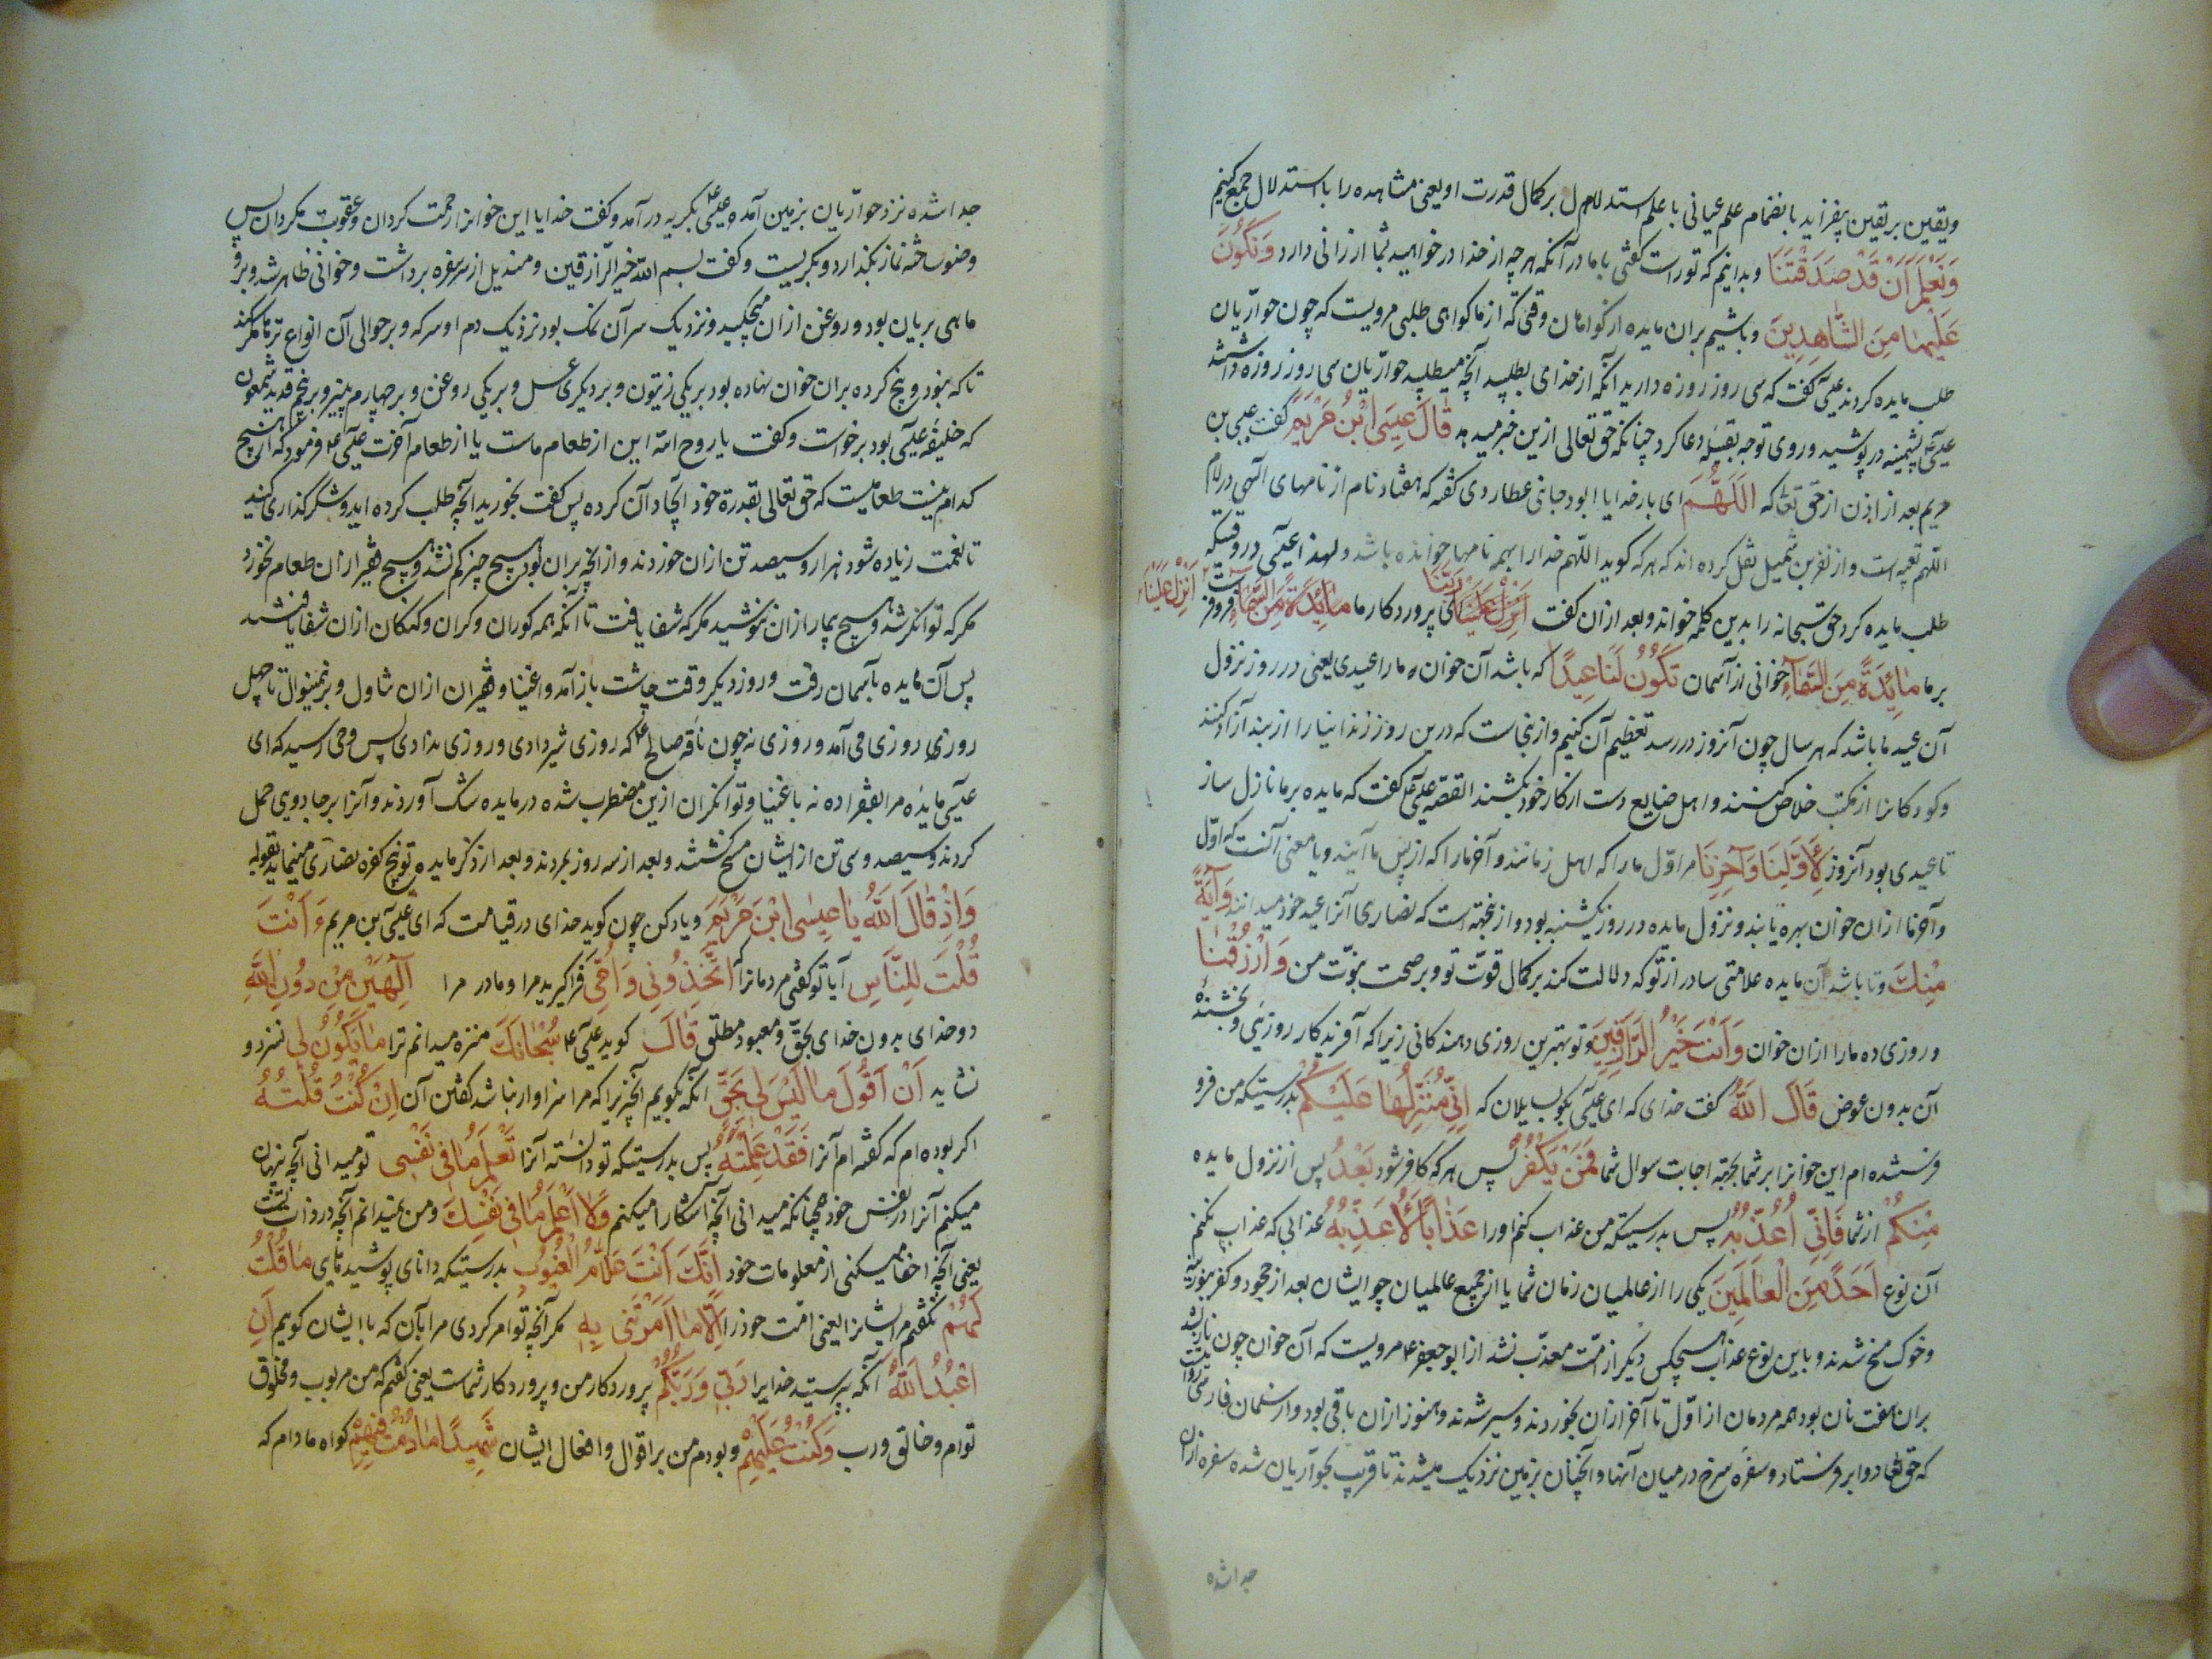 و یقین بر یقین بیفزاید بانضمام علم عیانی با علم استدلال بر کمال قدرت او یعنی مشاهده را با استدلال جمع کنیم
وَنَعْلَمَ اَنْ قَدْ صَدَقْتَنَا و بدانیم که تو راست گفتی با ما در آنکه هر چه از خدا درخواهید بشما ارزانی دارد وَنَكُونَ
عَلَيْهَا مِنَ الشَّاهِدِينَ و باشیم بران مایده از کواهان وقتی که از ما کواهی طلبی مرویست که چون حواریان
طلب مایده کردند عیسی گفت که سی روز روزه دارید آنگه از خدای بطلبید آنچه میطلبید حواریان سی روز روزه داشتند
عیسی پشمینه در پوشید و روی توجه بقبله دعا کرد چنانکه حق تعالی ازین خبر میدهد قَالَ عِيسَى ابْنُ مَرْيَمَ گفت عیسی بن
مریم بعد از اذن از حق تعا که اَللّهُمَّ ای بار خدایا ابو رجا عطاردی گفته که هفتاد نام از نامهای الهی در لام
اللهم تعبیه است و از نضر بن شمیل نقل کرده اند که هر که گوید اللهم خدا را بهمه نامها خوانده باشد و لهذا عیسی در وقتیکه
طلب مایده کرد حق سبحانه را بدین کلمه خواند و بعد ازان گفت رَبَّنَا ای پروردکار ما اَنْزِلْ عَلَيْنَا فرو فرست
بر ما مَائِدَةً مِنَ السَّمَاءِ خوانی از آسمان تَكُونُ لَنَا عِيدًا که باشد آن خوان مارا عیدی یعنی در روز نزول
آن عید ما باشد که هر سال چون آنروز در رسد تعظیم آن کنیم و ازینجاست که درین روز زندانیانرا از بند آزاد کنند
و کودکانرا از مکتب خلاص کنند و اهل صنایع دست از کار خود بکشند القصه عیسی گفت که مایده بر ما نازل ساز
تا عیدی بود آنروز لِاَوَّلِنَا وَآخِرِنَا مر اول ما را که اهل زمانند و آخر ما را که از پس ما آیند و یا معنی آنست که اول
و آخر ما ازان خوان بهره یابند و نزول مایده در روز یکشنبه بود و ازینجهتست که نصاری آنرا عید خود میدانند وَآيَةً
مِنْكَ و تا باشد آن مایده علامتی صادر از تو که دلالت کند بر کمال قوت تو و بر صحت نبوت من وَارْزُقْنَا
و روزی ده مارا ازان خوان وَاَنْتَ خَيْرُ الرَّازِقِينَ و تو بهترین روزی دهندکانی زیرا که آفریدکار روزیی و بخشنده
آن بدون عوض قَالَ اللّٰهُ گفت خدای که ای عیسی بگو بسایلان که اِنِّي مُنَزِّلُهَا عَلَيْكُمْ بدرستیکه من فرو
فرستنده ام این خوانرا بر شما بجهة اجابت سوال شما فَمَنْ يَكْفُرْ پس هر که کافر شود بَعْدُ پس از نزول مایده
مِنْكُمْ از شما فَاِنِّي اُعَذِّبُهُ پس بدرستیکه من عذاب کنم او را عَذَابًا لَا اُعَذِّبُهُ عذابی که عذاب نکنم
آن نوع اَحَدًا مِنَ الْعَالَمِينَ یکی را از عالمیان زمان شما یا از جمیع عالمیان چو ایشان بعد از جحود و کفر بوزینه
و خوک مسخ شدند و باین نوع عذاب هیچکس دیگر از امت معذب نشد از ابو جعفر مرویست که آن خوان چون نازل شد
بران هفت نان بود همه مردمان از اول تا آخر ازان بخوردند و سیر شدند و هنوز ازان باقی بود و از سلمان فارسی روایتست
که حق تعا دو ابر فرستاد و سفره سرخ در میان آنها و آنچنان بزمین نزدیک میشدند تا قریب بحواریان شده سفره ازان
جدا شده
جدا شده نزد حواریان بزمین آمد و عیسی بگریه در آمد و گفت خدایا این خوانرا رحمت کردان و عقوبت مکردان پس
وضو ساخته نماز بگذارد و بگریست و گفت بسم الله خیر الرازقین و مندیل از سر سفره برداشت و خوانی ظاهر شد و برو
ماهی بریان بود و روغن ازان میچکید و نزدیک سر آن نمک بود نزدیک دم او سرکه و بر حوالی آن انواع ترها مکر کند
نا که نبود و پنج کرده بران خوان نهاده بود بر یکی زیتون و بر دیگری عسل و بر یکی روغن و بر چهارم پنیر و بر پنجم قدید شمعون
که خلیفه عیسی بود برخواست و گفت یا روح الله این از طعام ماست یا از طعام آخرت عیسی فرمود که از هیچ
کدام نیست طعامیست که حق تعالی بقدرة خود ایجاد آن کرده پس گفت بخورید آنچه طلب کرده اید و شکر گذاری کنید
تا نعمت زیاده شود هزار و سیصد تن ازان خوردند و از آنچه بران بود هیچ چیز کم نشد و هیچ فقیر ازان طعام نخورد
مکر که توانکر شد و هیچ بیمار ازان ننوشید مکر که شفا یافت تا آنکه همه کوران و کران و گنگان ازان شفا یافتند
پس آن مایده بآسمان رفت و روز دیگر وقت چاشت باز آمد و اغنیا و فقیران ازان تناول و برهمینوال تا چهل
روز روزی می آمد و روزی نه چون ناقه صالح که روزی شیر دادی و روزی ندادی پس وحی رسید که ای
عیسی مایده مرا بفقرا ده نه باغنیا و توانکران ازین مضطرب شده در مایده شک آوردند و آنرا بر جادویی حمل
کردند و سیصد و سی تن از ایشان مسخ کشتند و بعد از سه روز بمردند و بعد از ذکر مایده توبیخ کفره نصاری مینماید بقوله
وَاِذْ قَالَ اللّٰهُ يَا عِيسَى ابْنَ مَرْيَمَ و یاد کن چون گوید خدای در قیامت که ای عیسی بن مریم ءَاَنْتَ
قُلْتَ لِلنَّاسِ آیا تو گفتی مردمانرا که اتَّخِذُونِي وَاُمِّيَ فرا گیرید مرا و مادر مرا اِلٰهَيْنِ مِنْ دُونِ اللّٰهِ
دو خدای بدون خدای بحق و معبود مطلق قَالَ گوید عیسی سُبْحَانَكَ منزه میدانم ترا مَا يَكُونُ لِي نسزد و
نشاید اَنْ اَقُولَ مَا لَيْسَ لِي بِحَقٍّ آنکه بگویم آنچیزیرا که مرا سزاوار نباشد گفتن آن اِنْ كُنْتُ قُلْتُهُ
اکر بوده ام که گفته ام آنرا فَقَدْ عَلِمْتَهُ پس بدرستیکه تو دانسته آنرا تَعْلَمُ مَا فِي نَفْسِي تو میدانی آنچه پنهان
میکنم آنرا در نفس خود همچنانکه میدانی آنچه آشکارا میکنم وَلَا اَعْلَمُ مَا فِي نَفْسِكَ و من نمیدانم آنچه در ذات تست
یعنی آنچه اخفا میکنی از معلومات خود اِنَّكَ اَنْتَ عَلَّامُ الْغُيُوبِ بدرستیکه دانای پوشیدهای مَا قُلْتُ
لَهُمْ نگفتم مر ایشانرا یعنی امت خود را اِلَّا مَا اَمَرْتَنِي بِهِ مکر آنچه تو امر کردی مرا بآن که با ایشان گویم اَنِ
اعْبُدُوا اللّٰهَ آنکه بپرستید خدایرا رَبِّي وَرَبَّكُمْ پروردکار من و پروردکار شماست یعنی گفتم که من مربوب و مخلوق
توام و خالق و رب وَكُنْتُ عَلَيْهِمْ و بودم من بر اقوال و افعال ایشان شَهِيدًا مَا دُمْتُ فِيهِمْ کواه مادام که